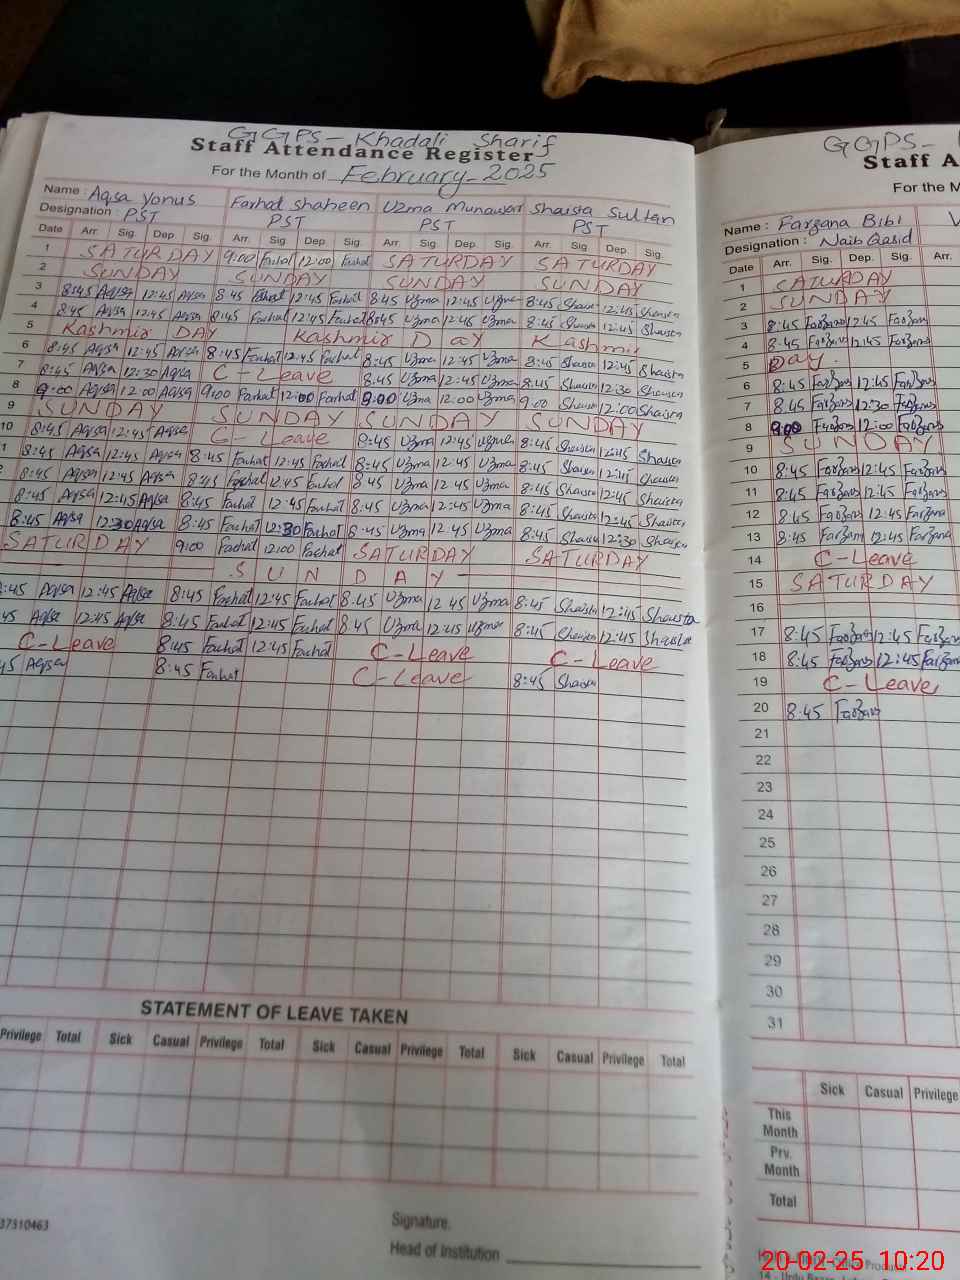 GGPS- Khadali Sharif
Staff Attendance Register
For the Month of February-2025
Name: Aqsa Yonus Farhat Shaheen Uzma Munawar Shaista Sultan
Designation: PST PST PST PST
Date Arr. Sig. Dep. Sig. Arr. Sig. Dep. Sig. Arr. Sig. Dep. Sig. Arr. Sig. Dep. Sig.
1 SATURDAY 9:00 Farhat 12:00 Farhat SATURDAY SATURDAY
2 SUNDAY SUNDAY SUNDAY SUNDAY
3 8:45 Aqsa 12:45 Aqsa 8:45 Farhat 12:45 Farhat 8:45 Uzma 12:45 Uzma 8:45 Shaista 12:45 Shaista
4 8:45 Aqsa 12:45 Aqsa 8:45 Farhat 12:45 Farhat 8:45 Uzma 12:45 Uzma 8:45 Shaista 12:45 Shaista
5 Kashmir DAY Kashmir Day Kashmir
6 8:45 Aqsa 12:45 Aqsa 8:45 Farhat 12:45 Farhat 8:45 Uzma 12:45 Uzma 8:45 Shaista 12:45 Shaista
7 8:45 Aqsa 12:30 Aqsa C-Leave 8:45 Uzma 12:45 Uzma 8:45 Shaista 12:30 Shaista
8 9:00 Aqsa 12:00 Aqsa 9:00 Farhat 12:00 Farhat 9:00 Uzma 12:00 Uzma 9:00 Shaista 12:00 Shaista
9 SUNDAY SUNDAY SUNDAY SUNDAY
10 8:45 Aqsa 12:45 Aqsa C-Leave 8:45 Uzma 12:45 Uzma 8:45 Shaista 12:45 Shaista
8:45 Aqsa 12:45 Aqsa 8:45 Farhat 12:45 Farhat 8:45 Uzma 12:45 Uzma 8:45 Shaista 12:45 Shaista
8:45 Aqsa 12:45 Aqsa 8:45 Farhat 12:45 Farhat 8:45 Uzma 12:45 Uzma 8:45 Shaista 12:45 Shaista
8:45 Aqsa 12:45 Aqsa 8:45 Farhat 12:45 Farhat 8:45 Uzma 12:45 Uzma 8:45 Shaista 12:45 Shaista
8:45 Aqsa 12:30 Aqsa 8:45 Farhat 12:30 Farhat 8:45 Uzma 12:45 Uzma 8:45 Shaista 12:30 Shaista
SATURDAY 9:00 Farhat 12:00 Farhat SATURDAY SATURDAY
SUNDAY
:45 Aqsa 12:45 Aqsa 8:45 Farhat 12:45 Farhat 8:45 Uzma 12:45 Uzma 8:45 Shaista 12:45 Shaista
45 Aqsa 12:45 Aqsa 8:45 Farhat 12:45 Farhat 8:45 Uzma 12:45 Uzma 8:45 Shaista 12:45 Shaista
C-Leave 8:45 Farhat 12:45 Farhat C-Leave C-Leave
45 Aqsa 8:45 Farhat C-Leave 8:45 Shaista
STATEMENT OF LEAVE TAKEN
Privilege Total Sick Casual Privilege Total Sick Casual Privilege Total Sick Casual Privilege Total
37310463
Signature.
Head of Institution
GGPS-
Staff A
For the M
Name: Farzana Bibi
Designation: Naib Qasid
Date Arr. Sig. Dep. Sig. Arr.
1 SATURDAY
2 SUNDAY
3 8:45 Farzana 12:45 Farzana
4 8:45 Farzana 12:45 Farzana
5 Day.
6 8:45 Farzana 12:45 Farzana
7 8:45 Farzana 12:30 Farzana
8 9:00 Farzana 12:00 Farzana
9 SUNDAY
10 8:45 Farzana 12:45 Farzana
11 8:45 Farzana 12:45 Farzana
12 8:45 Farzana 12:45 Farzana
13 8:45 Farzana 12:45 Farzana
14 C-Leave
15 SATURDAY
16
17 8:45 Farzana 12:45 Farzana
18 8:45 Farzana 12:45 Farzana
19 C-Leave
20 8:45 Farzana
21
22
23
24
25
26
27
28
29
30
31
Sick Casual Privilege
This Month
Prv. Month
Total
20-02-25 10:20